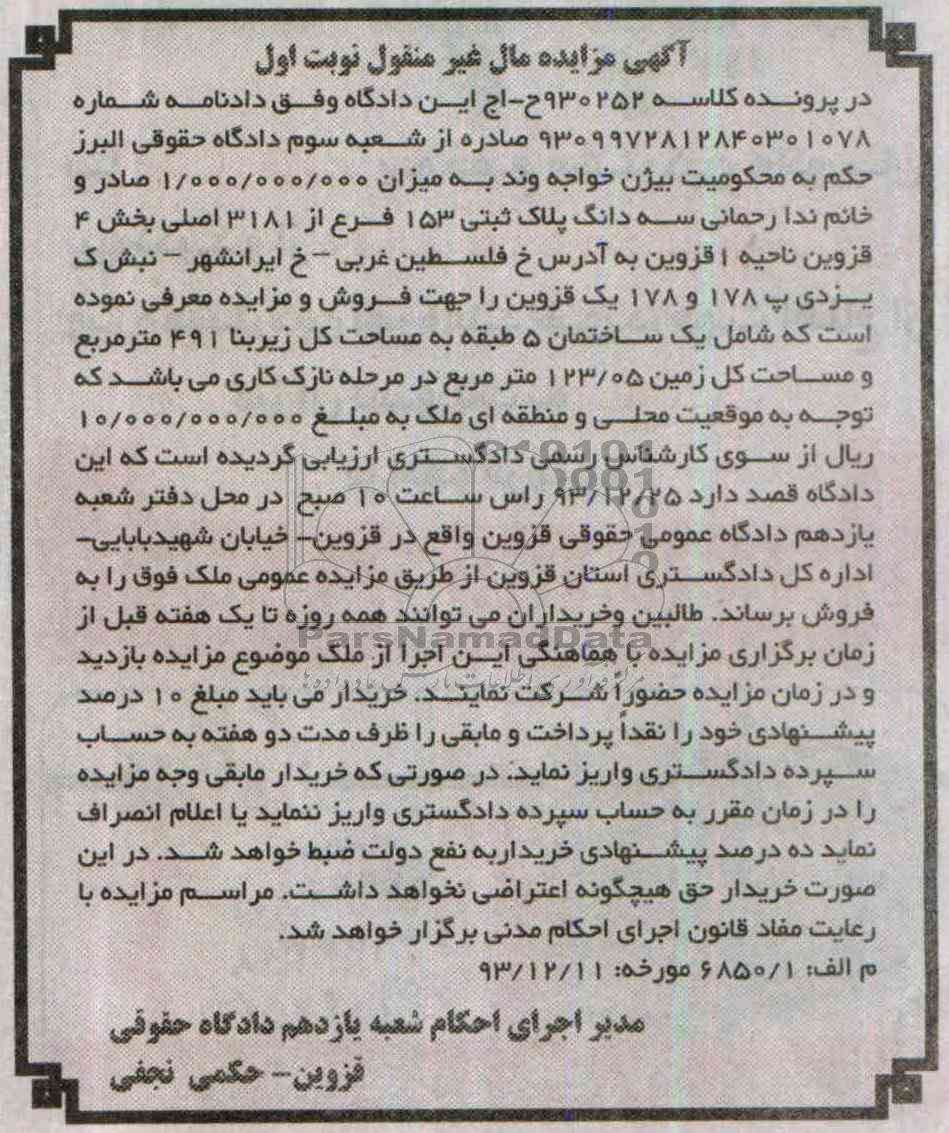 آگهی مزایده مال غیر منقول نوبت اول
در پرونده کلاسه ۹۳۰۲۵۲ح-اج این دادگاه وفق دادنامه شماره
۹۳۰۹۹۷۲۸۱۲۸۴۰۳۰۱۰۷۸ صادره از شعبه سوم دادگاه حقوقی البرز
حکم به محکومیت بیژن خواجه وند به میزان ۱/۰۰۰/۰۰۰/۰۰۰ صادر و
خانم ندا رحمانی سه دانگ پلاک ثبتی ۱۵۳ فرع از ۳۱۸۱ اصلی بخش ۴
قزوین ناحیه ۱ قزوین به آدرس خ فلسطین غربی – خ ایرانشهر – نبش ک
یزدی پ ۱۷۸ و ۱۷۸ یک قزوین را جهت فروش و مزایده معرفی نموده
است که شامل یک ساختمان ۵ طبقه به مساحت کل زیربنا ۴۹۱ مترمربع
و مساحت کل زمین ۱۲۳/۰۵ متر مربع در مرحله نازک کاری می باشد که
توجه به موقعیت محلی و منطقه ای ملک به مبلغ ۱۰/۰۰۰/۰۰۰/۰۰۰
ریال از سوی کارشناس رسمی دادگستری ارزیابی گردیده است که این
دادگاه قصد دارد ۹۳/۱۲/۲۵ راس ساعت ۱۰ صبح در محل دفتر شعبه
یازدهم دادگاه عمومی حقوقی قزوین واقع در قزوین- خیابان شهیدبابایی-
اداره کل دادگستری استان قزوین از طریق مزایده عمومی ملک فوق را به
فروش برساند. طالبین وخریداران می توانند همه روزه تا یک هفته قبل از
زمان برگزاری مزایده با هماهنگی این اجرا از ملک موضوع مزایده بازدید
و در زمان مزایده حضوراً شرکت نمایند. خریدار می باید مبلغ ۱۰ درصد
پیشنهادی خود را نقداً پرداخت و مابقی را ظرف مدت دو هفته به حساب
سپرده دادگستری واریز نماید. در صورتی که خریدار مابقی وجه مزایده
را در زمان مقرر به حساب سپرده دادگستری واریز ننماید یا اعلام انصراف
نماید ده درصد پیشنهادی خریداربه نفع دولت ضبط خواهد شد. در این
صورت خریدار حق هیچگونه اعتراضی نخواهد داشت. مراسم مزایده با
رعایت مفاد قانون اجرای احکام مدنی برگزار خواهد شد.
م الف: ۶۸۵۰/۱ مورخه: ۹۳/۱۲/۱۱
مدیر اجرای احکام شعبه یازدهم دادگاه حقوقی
قزوین- حکمی نجفی
ParsNamadData